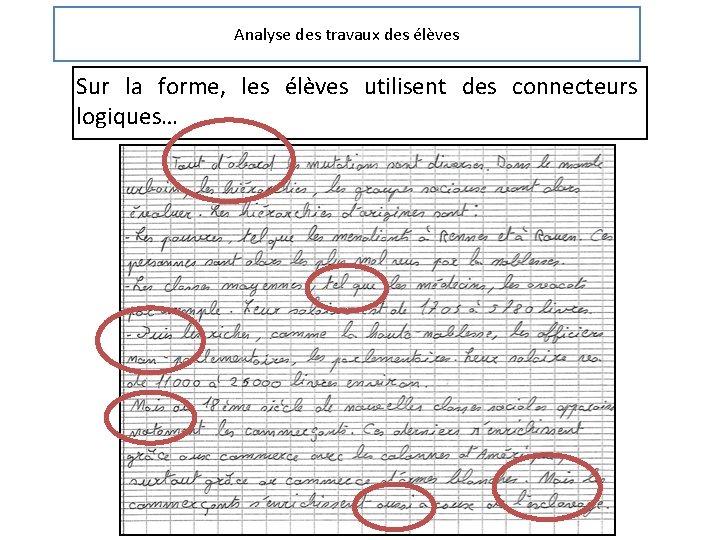 Analyse des travaux des élèves
Sur la forme, les élèves utilisent des connecteurs
logiques…
Tout d'abord les mutations sont diverses. Dans le monde
urbain, les hiérarchies, les groupes sociause vont alors
évoluer. Les hiérarchies d'origines sont :
- Les pauvres, tel que les mendiants à Rennes et à Rouen. Ces
personnes sont alors les plus mal vus par la noblesse.
- Les classes moyennes, tel que les médecins, les avocats
par exemple. Leur salaire est de 1705 à 5780 livres.
- Puis les riches, comme la haute-noblesse, les officiers
non-parlementaires, les parlementaires. Leux salaire va
de 11000 à 25000 livres environ.
Mais au 18ème siècle de nouvelles classes sociales apparaisse
notament les commerçants. Ces derniers s'enrichissent
grâce aux commerce avec les colonnes d'Amérique,
surtout grâce au commerce d'armes blanches. Mais les
commerçants s'enrichissent aussi à coux de l'esclavage.